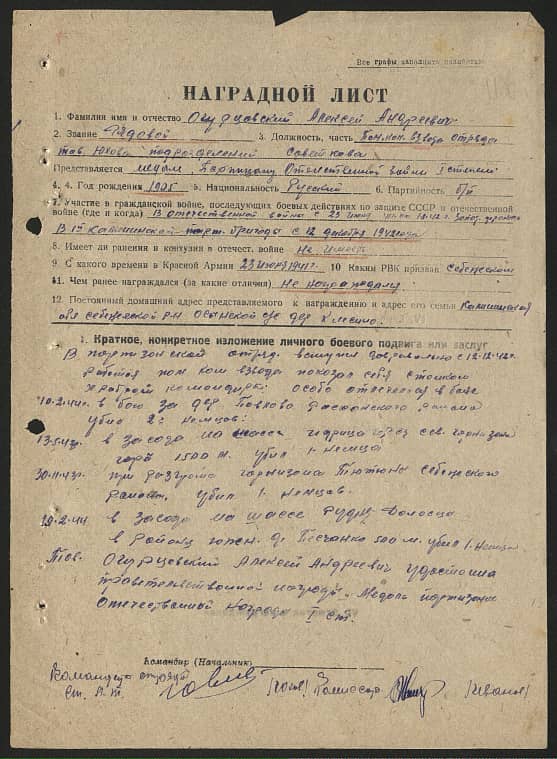 Все графы заполнять полностью
НАГРАДНОЙ ЛИСТ
1. Фамилия имя и отчество Огурцовский Алексей Андреевич
2. Звание Рядовой 3. Должность, часть Пом.ком. взвода отряда
тов. Юхова подразделений Советкова
Представляется медаль „Партизану Отечественной войны I степени
4. 4. Год рождения 1905 5. Национальность Русский 6. Партийность б/п
7. Участие в гражданской войне, последующих боевых действиях по защите СССР и отечественной
войне (где и когда) В отечественной войне с 23 июня
В 1й Калининской парт. бригады с 12 декабря 1942 года
8. Имеет ли ранения и контузии в отечест. войне не имеет
9. С какого времени в Красной Армии 23 июня 1941 г. 10 Каким РВК призван Себежским
11. Чем ранее награждался (за какие отличия) не награждался
12. Постоянный домашний адрес представляемого к награждению и адрес его семьи Калининская
обл Себежский р-н Осынский с/с дер
1. Краткое, конкретное изложение личного боевого подвига или заслуг
В партизанский отряд вступил добровольно с 12.12.42г.
Работая пом ком взвода показал себя стойким
храбрым командиром. Особо отличился в боях
10.2.44г. в бою за дер Павлово района
убил 2х немцев.
13.5.43г. в засаде на шоссе Идрица
1500 м. убил 1. немца
30.11.43г. при разгроме гарнизона Тютюны Себежского
района, убил 1. немцев.
19.2.44 в засаде на шоссе Рудня Долосцы
в районе дер. Песчанка 500 м. убил 1. немца
Тов. Огурцовский Алексей Андреевич удостоин
правительственной награды „Медаль партизана
Отечественной Награда I ст.
Командир (Начальник)
Командир отряда
ст. л-т. /Юхов/ Комиссар /Иванов/